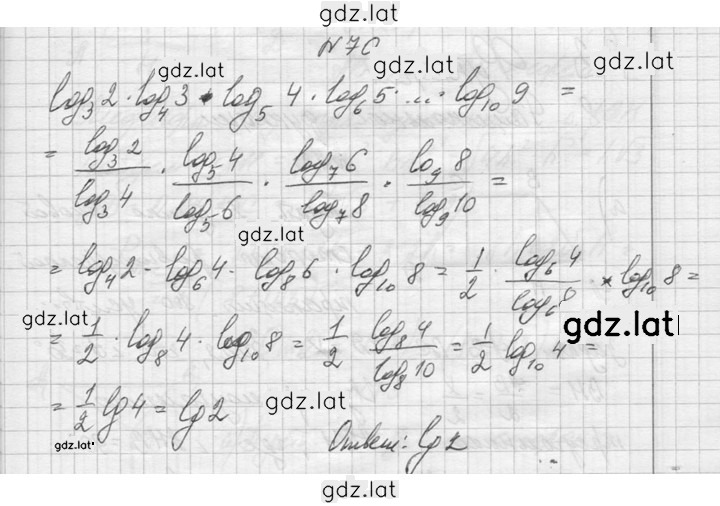 gdz.lat
N 76
gdz.lat gdz.lat
log₃2 · log₄3 · log₅4 · log₆5 · ... · log₁₀9 =
= log₃2/log₃4 · log₅4/log₅6 · log₇6/log₇8 · log₉8/log₉10 =
gdz.lat
= log₄2 · log₆4 · log₈6 · log₁₀8 = 1/2 · log₆4/log₆8 · log₁₀8 =
gdz.lat gdz.lat
= 1/2 · log₈4 · log₁₀8 = 1/2 log₈4/log₈10 = 1/2 log₁₀4 =
gdz.lat
= 1/2 lg4 = lg2
gdz.lat Ответ: lg2
gdz.lat